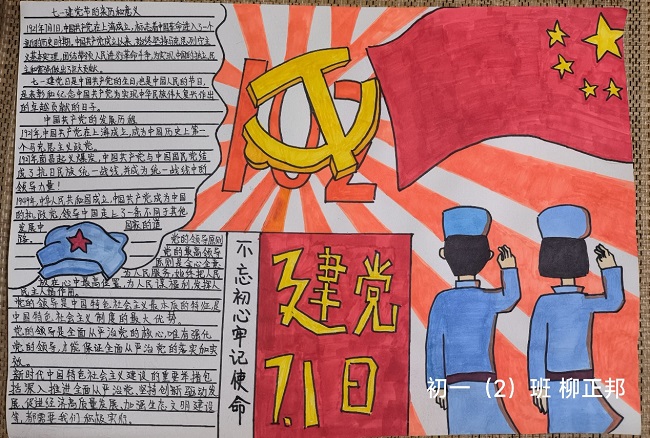 七一建党节的来历和意义
1921年7月1日,中国共产党在上海成立,标志着中国革命进入了一个
新的历史时期。中国共产党成立以来,始终坚持马克思列宁主
义基本原理,团结带领人民进行革命斗争,为实现中国的独立、民
主和富强做出了巨大贡献。
七一建党日是中国共产党的生日,也是中国人民的节日,
是表彰和纪念中国共产党为实现中华民族伟大复兴作出
的卓越贡献的日子。
中国共产党的发展历程
1921年,中国共产党在上海成立,成为中国历史上第一
个马克思主义政党。
1931年南昌起义爆发,中国共产党与中国国民党结
成了抗日民族统一战线,并成为统一战线中的
领导力量!
1949年,中华人民共和国成立,中国共产党成为中国
的执政党,领导中国走上了一条不同于其他
发展中国家的道
路。
党的领导原则
党的最高领导
原则是全心全意
为人民服务,始终把人民
放在心中最高位置,为人民谋福利,发挥人
民主人翁作用。
党的领导是中国特色社会主义最本质的特征,是
中国特色社会主义制度的最大优势。
党的领导是全面从严治党的核心,唯有强化
党的领导,才能保证全面从严治党的落实和实
效。
新时代中国特色社会主义建设的重要举措包
括深入推进全面从严治党、坚持创新驱动发
展、促进经济高质量发展、加强生态文明建设
等,都需要我们积极实行。
102
不忘初心牢记使命
建党
7.1日
初一(2)班 柳正邦